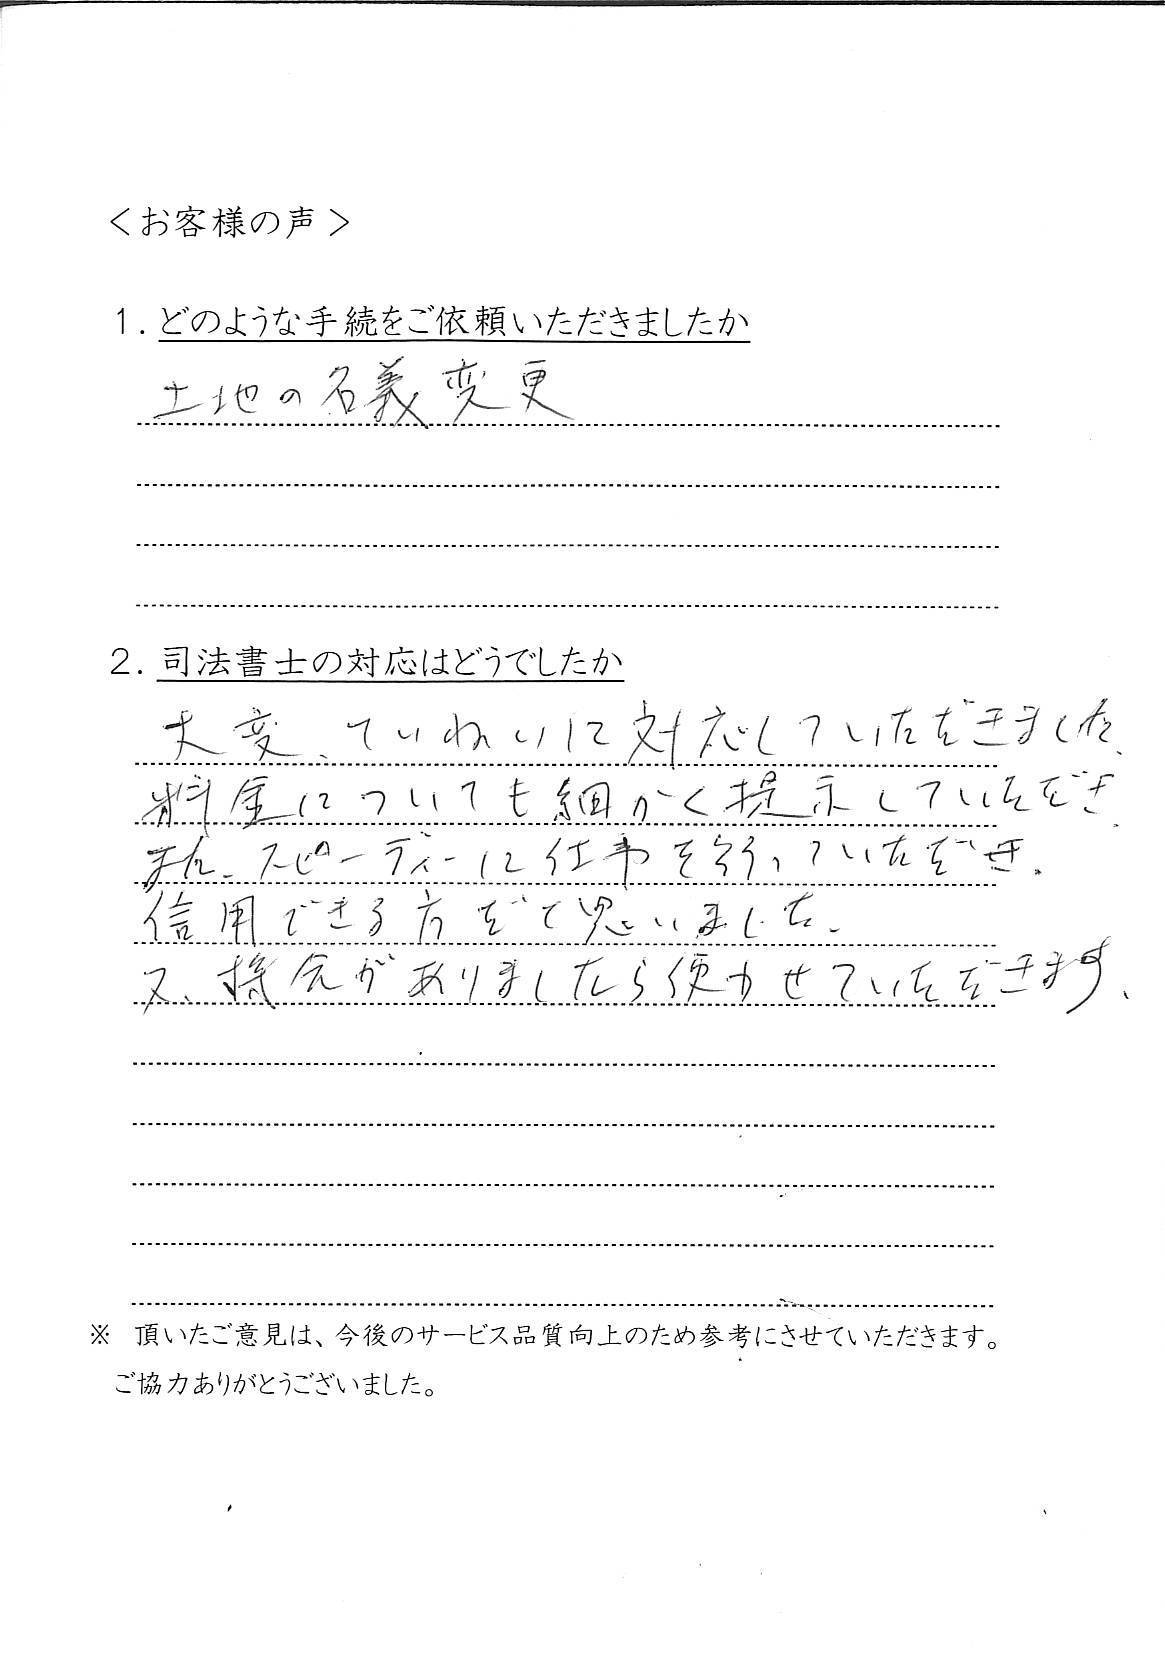 ＜お客様の声＞
１．どのような手続をご依頼いただきましたか
土地の名義変更
２．司法書士の対応はどうでしたか
大変、ていねいに対応していただきました、
料金についても細かく提示していただき、
また、スピーディーに仕事を行っていただき、
信用できる方だと思いました。
又、機会がありましたら使わせていただきます、
※　頂いたご意見は、今後のサービス品質向上のため参考にさせていただきます。
ご協力ありがとうございました。